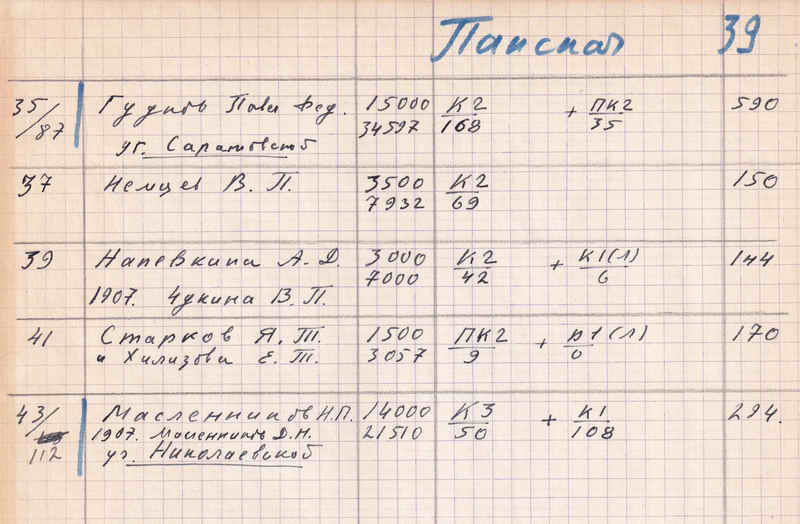 Панская 39
35/87 Гудков Павл Фед. 15000 К2 + ПК2 590
34597 168 35
уг. Саратовской
37 Немцев В. П. 3500 К2 150
7932 69
39 Напевкина А. Д. 3000 К2 + К1(л) 144
7000 42 6
1907. Чукина В. П.
41 Старков Я. Т. 1500 ПК2 + п1(л) 170
и Хилизова Е. Т. 3057 9 0
43/ Масленников Н.П. 14000 К3 + К1 294.
1907. Масленников Д.Н. 21510 50 108
112 уг. Николаевской